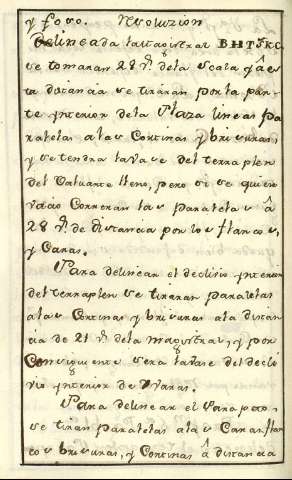 y foso. Resoluzion
Delineada la magistral BHTSKC.
se tomaran 28 v.s de la Scala y â es
ta distancia se tiraran por la par
te ynterior de la Plaza lineas pa
ralelas a las Cortinas y brisuras,
y se tendra la vase del terraplen
del Valuarte lleno, pero si se quier
vacio Correran las paralelas â
28 v.s de distancia por los flancos,
y Caras.
Para delinear el declivio ynterior
del terraplen se tiraran paralelas
a las Cortinas y brisuras a la distan
cia de 21 v.s de la magistral, y por
Consiguiente sera la vase del decli
vio ynterior de 7 varas.
Para delinear el Parapeto
se tiran paralelas a las Caras, flan
cos brisuras, y Cortinas â distancia